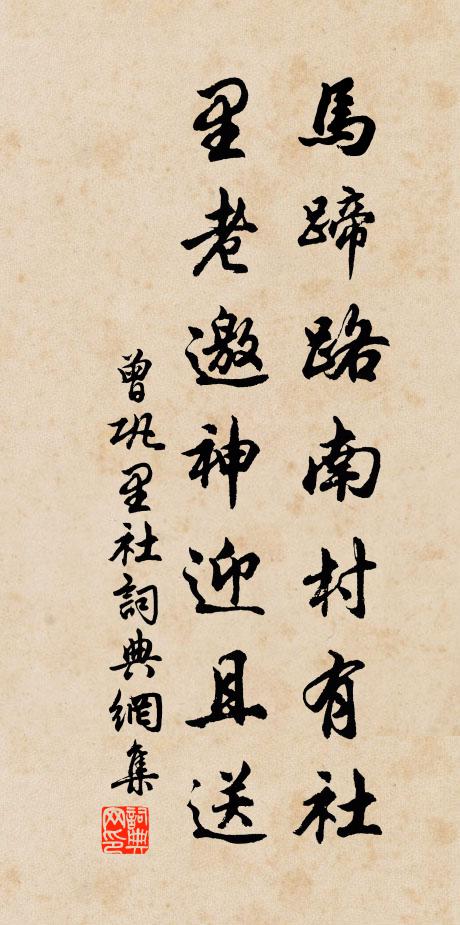 馬蹄路南村有社
里老邀神迎且送
曾巩里社詞典網集
詞典網印